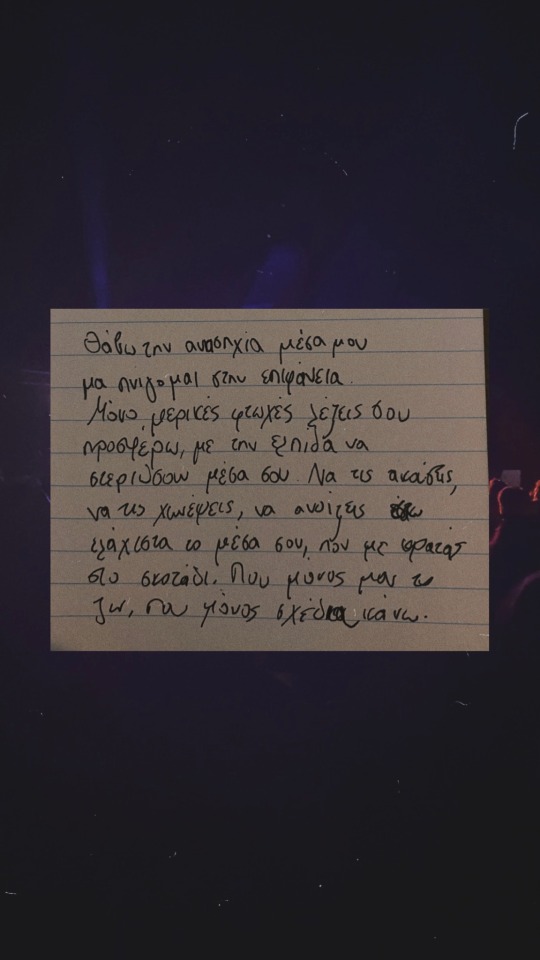 Θάβω την ανασηχία μέσα μου
μα πνιγομαι στην επιφάνεια.
Μόνο μερικές φτωχές λέξεις σου
προσφέρω, με την ελπιδα να
στεριώσουν μέσα σου. Να τις ακούσεις,
να τις χωνέψεις, να ανοίξεις
ελάχιστα το μέσα σου, που με κρατάς
στο σκοτάδι. Που μόνος μου το
ζω, που μόνος σχέδια κάνω.